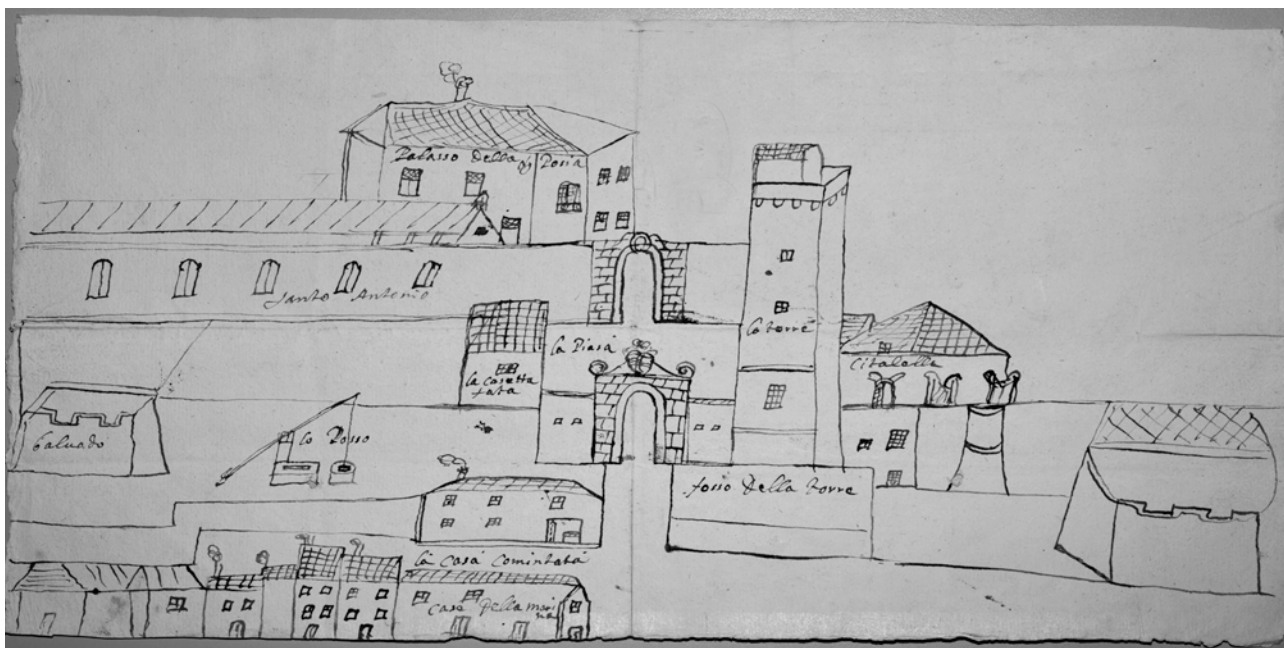 Palasso della
Posia
Santo Antonio
la Piasa
la torre
la casetta
fata
Citalella
baluado
lo Posso
fosso della torre
la casa comintata
case della mari
na